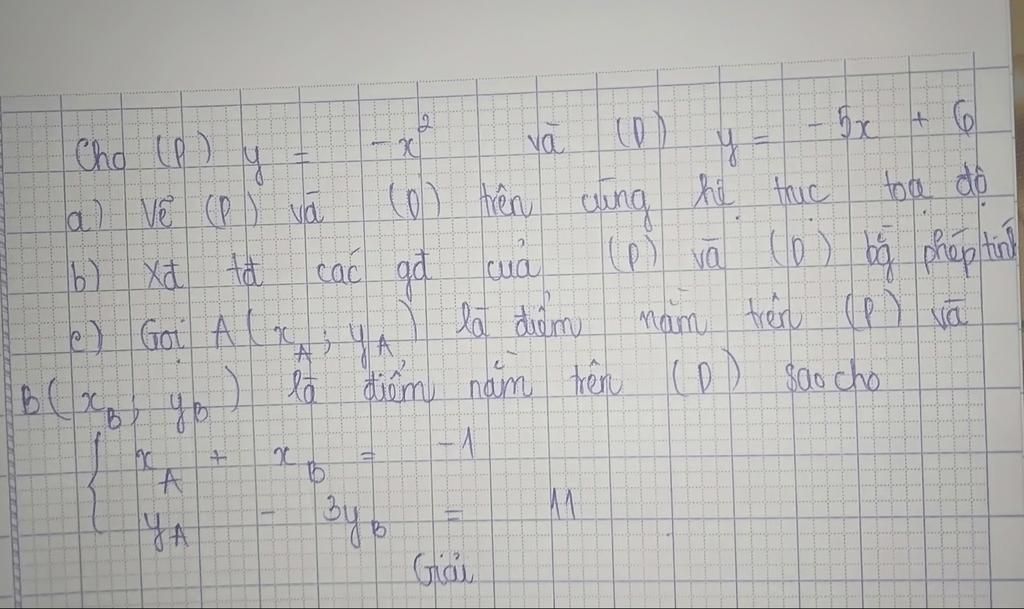 Cho (P) y = -x² và (D) y = -5x + 6
a) Vẽ (P) và (D) trên cùng hệ trục toạ độ
b) Xđ tđ các gđ của (P) và (D) bg pháp tính
c) Gọi A(x_A; y_A) là điểm nằm trên (P) và
B(x_B; y_B) là điểm nằm trên (D) sao cho
x_A + x_B = -1
y_A - 3y_B = 11
Giải